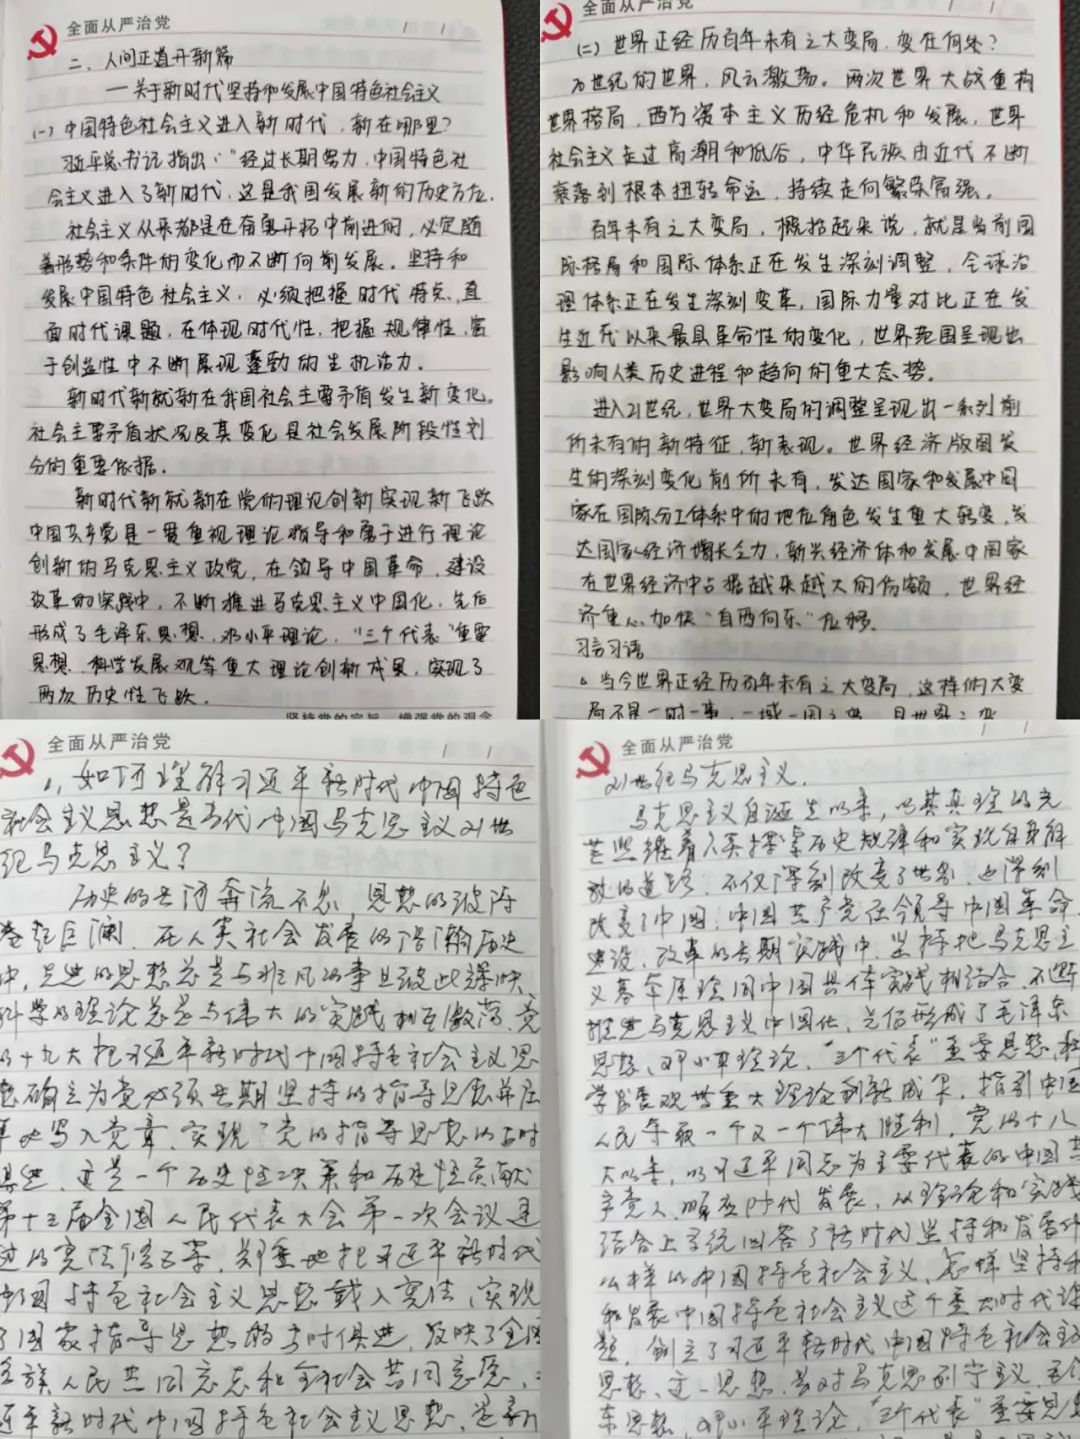 全面从严治党
二、人间正道开新篇
—关于新时代坚持和发展中国特色社会主义
(一)中国特色社会主义进入新时代，新在哪里？
习近平总书记指出："经过长期努力，中国特色社
会主义进入了新时代，这是我国发展新的历史方位。
社会主义从来都是在开拓中前进的，必定随
着形势和条件的变化而不断向前发展。坚持和
发展中国特色社会主义，必须把握时代特点，直
面时代课题，在体现时代性，把握规律性，富
于创造性中不断展现蓬勃的生机活力。
新时代新就新在我国社会主要矛盾发生新变化。
社会主要矛盾状况及其变化是社会发展阶段性划
分的重要依据。
新时代新就新在党的理论创新实现新飞跃
中国共产党是一贯重视理论指导和勇于进行理论
创新的马克思主义政党，在领导中国革命，建设
改革的实践中，不断推进马克思主义中国化，先后
形成了毛泽东思想，邓小平理论，"三个代表"重要
思想，科学发展观等重大理论创新成果，实现了
两次历史性飞跃。
坚持党的宗旨 增强党的观念
全面从严治党
(二)世界正经历百年未有之大变局，变在何处？
20世纪的世界，风云激荡。两次世界大战重构
世界格局，西方资本主义历经危机和发展，世界
社会主义走过高潮和低谷，中华民族由近代不断
衰落到根本扭转命运，持续走向繁荣富强。
百年未有之大变局，概括起来说，就是当前国
际格局和国际体系正在发生深刻调整，全球治
理体系正在发生深刻变革，国际力量对比正在发
生近代以来最具革命性的变化，世界范围呈现出
影响人类历史进程和趋向的重大态势。
进入21世纪，世界大变局的调整呈现出一系列前
所未有的新特征，新表现。世界经济版图发
生的深刻变化前所未有，发达国家和发展中国
家在国际分工体系中的地位角色发生重大转变，发
达国家经济增长乏力，新兴经济体和发展中国家
在世界经济中占据越来越大的份额，世界经
济重心加快"自西向东"位移。
习言习语
△当今世界正经历百年未有之大变局，这样的大变
局不是一时一事，一域一国之变，是世界之变
全面从严治党
1、如何理解习近平新时代中国特色
社会主义思想是当代中国马克思主义21世
纪马克思主义？
历史的长河奔流不息 思想的波涛
卷起巨澜，在人类社会发展的浩瀚历史
中，先进的思想总是与非凡的事业彼此辉映，
科学的理论总是与伟大的实践相互激荡，党
的十九大把习近平新时代中国特色社会主义思
想确立为党必须长期坚持的指导思想并庄
严地写入党章，实现了党的指导思想的与时
俱进，这是一个历史性决策和历史性贡献
第十三届全国人民代表大会第一次会议通
过的宪法修正案，郑重地把习近平新时代
中国特色社会主义思想载入宪法，实现
了国家指导思想的与时俱进，反映了全国
各族人民共同意志和全社会共同意愿，习
近平新时代中国特色社会主义思想，是新
全面从严治党
21世纪马克思主义。
马克思主义自诞生以来，以其真理的光
芒照耀着人类探索历史规律和实现自身解
放的道路，不仅深刻改变了世界，也深刻
改变了中国，中国共产党在领导中国革命，
建设，改革的长期实践中，坚持把马克思主
义基本原理同中国具体实践相结合，不断
推进马克思主义中国化，先后形成了毛泽东
思想，邓小平理论，"三个代表"重要思想，科
学发展观等重大理论创新成果，指引中国
人民夺取一个又一个伟大胜利，党的十八
大以来，以习近平同志为主要代表的中国共
产党人，顺应时代发展，从理论和实践
结合上系统回答了新时代坚持和发展什
么样的中国特色社会主义，怎样坚持和
和发展中国特色社会主义这个重大时代课
题，创立了习近平新时代中国特色社会主义
思想，这一思想，是对马克思列宁主义，毛泽
东思想，邓小平理论，"三个代表"重要思想